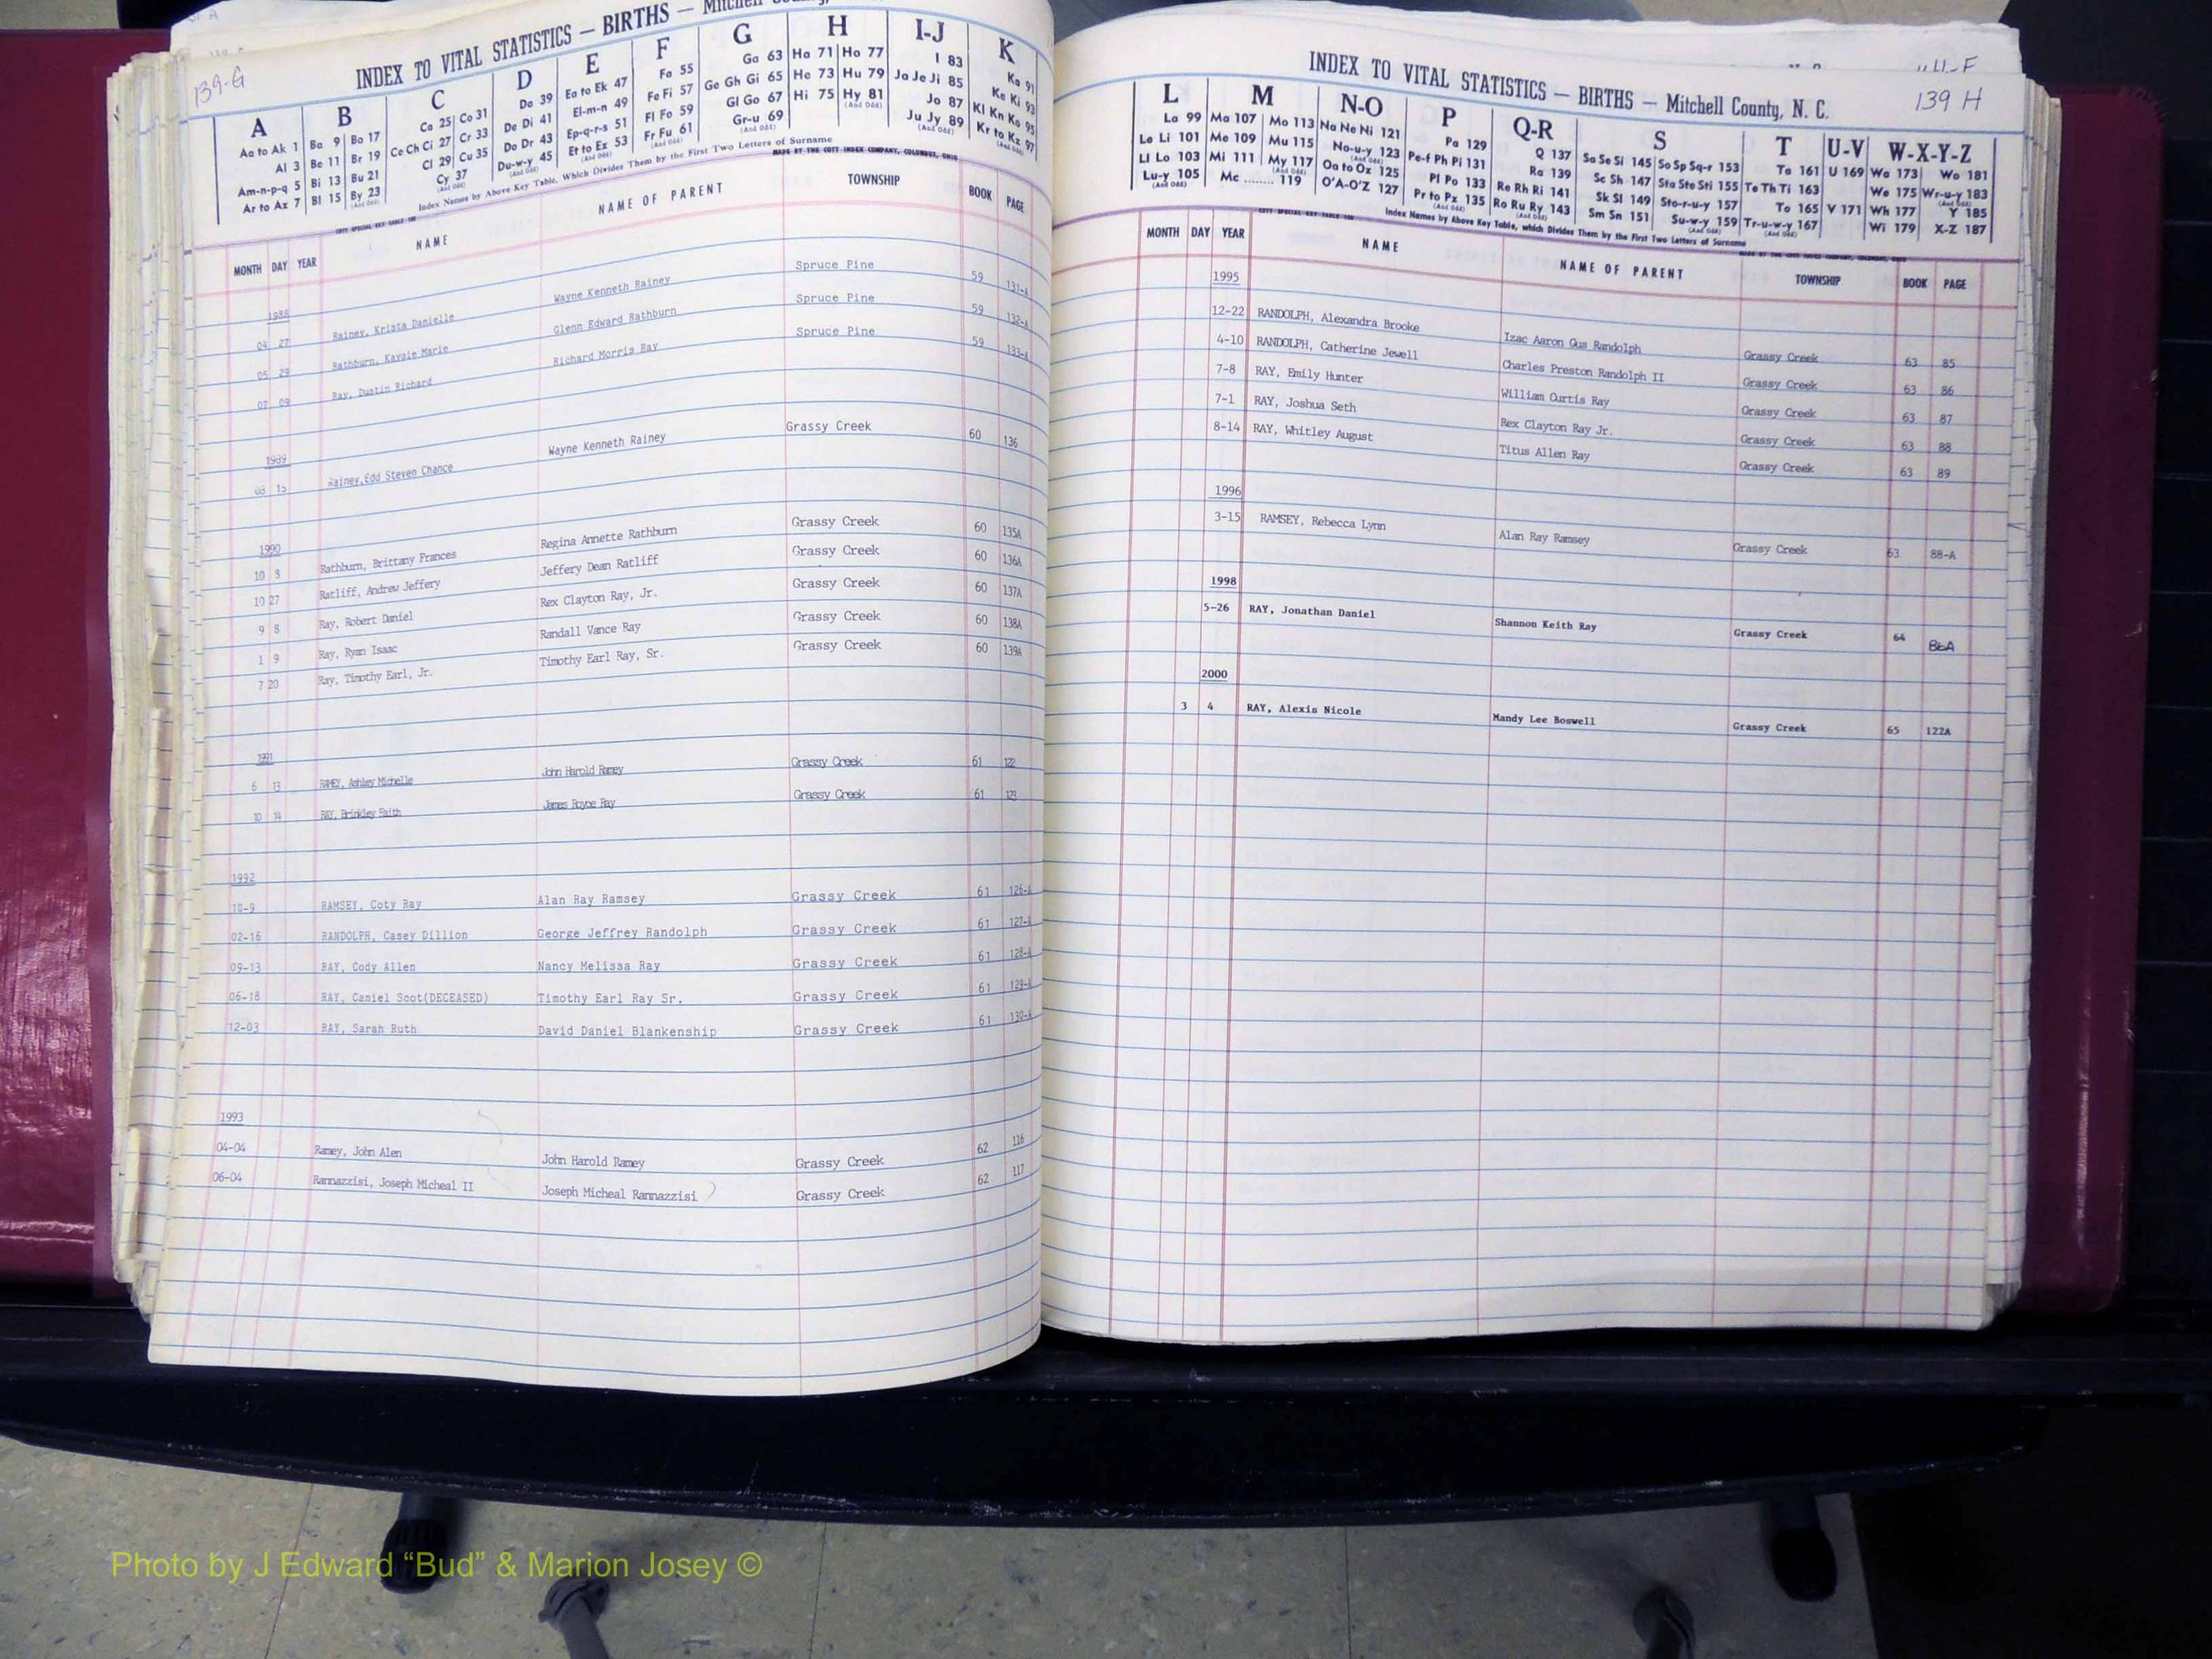 139-G
INDEX TO VITAL STATISTICS — BIRTHS — Mitchell
A B C D E F G H I-J K
Aa to Ak 1 Ba 9 Bo 17 Ca 25 Co 31 Da 39 Ea to Ek 47 Fa 55 Ga 63 Ha 71 Ho 77 I 83 Ka 91
Al 3 Be 11 Br 19 Ce Ch Ci 27 Cr 33 De Di 41 El-m-n 49 Fe Fi 57 Ge Gh Gi 65 He 73 Hu 79 Ja Je Ji 85 Ke Ki 93
Am-n-p-q 5 Bi 13 Bu 21 Cl 29 Cu 35 Do Dr 43 Ep-q-r-s 51 Fl Fo 59 Gl Go 67 Hi 75 Hy 81 Jo 87 Kl Kn Ko 95
Ar to Az 7 Bl 15 By 23 Cy 37 Du-w-y 45 Et to Ez 53 Fr Fu 61 Gr-u 69 Ju Jy 89 Kr to Kz 97
Index Names by Above Key Table, Which Divides Them by the First Two Letters of Surname
MADE BY THE COTT INDEX COMPANY, COLUMBUS, OHIO
MONTH DAY YEAR NAME NAME OF PARENT TOWNSHIP BOOK PAGE
1988
04 27 Rainey, Krista Danielle Wayne Kenneth Rainey Spruce Pine 59 131-A
05 29 Rathburn, Kaysie Marie Glenn Edward Rathburn Spruce Pine 59 132-A
07 09 Ray, Dustin Richard Richard Morris Ray Spruce Pine 59 133-A
1989
08 15 Rainey,Edd Steven Chance Wayne Kenneth Rainey Grassy Creek 60 136
1990
10 8 Rathburn, Brittany Frances Regina Annette Rathburn Grassy Creek 60 135A
10 27 Ratliff, Andrew Jeffery Jeffery Dean Ratliff Grassy Creek 60 136A
9 8 Ray, Robert Daniel Rex Clayton Ray, Jr. Grassy Creek 60 137A
1 9 Ray, Ryan Isaac Randall Vance Ray Grassy Creek 60 138A
7 20 Ray, Timothy Earl, Jr. Timothy Earl Ray, Sr. Grassy Creek 60 139A
1991
6 13 RAMEY, Ashley Michelle John Harold Ramey Grassy Creek 61 122
10 14 RAY, Brinkley Faith James Royce Ray Grassy Creek 61 123
1992
10-9 RAMSEY, Coty Ray Alan Ray Ramsey Grassy Creek 61 126-A
02-16 RANDOLPH, Casey Dillion George Jeffrey Randolph Grassy Creek 61 127-A
09-13 RAY, Cody Allen Nancy Melissa Ray Grassy Creek 61 128-A
06-18 RAY, Caniel Scot(DECEASED) Timothy Earl Ray Sr. Grassy Creek 61 129-A
12-03 RAY, Sarah Ruth David Daniel Blankenship Grassy Creek 61 130-A
1993
04-04 Ramey, John Alen John Harold Ramey Grassy Creek 62 116
06-04 Rannazzisi, Joseph Micheal II Joseph Micheal Rannazzisi Grassy Creek 62 117
INDEX TO VITAL STATISTICS — BIRTHS — Mitchell County, N. C.
139 H
L M N-O P Q-R S T U-V W-X-Y-Z
La 99 Ma 107 Mo 113 Na Ne Ni 121 Pa 129 Q 137 Sa Se Si 145 So Sp Sq-r 153 Ta 161 U 169 Wa 173 Wo 181
Le Li 101 Me 109 Mu 115 No-u-y 123 Pe-f Ph Pi 131 Ra 139 Sc Sh 147 Sta Ste Sti 155 Te Th Ti 163 We 175 Wr-u-y 183
Ll Lo 103 Mi 111 My 117 Oa to Oz 125 Pl Po 133 Re Rh Ri 141 Sk Sl 149 Sto-r-u-y 157 To 165 V 171 Wh 177 Y 185
Lu-y 105 Mc ........ 119 O'A-O'Z 127 Pr to Pz 135 Ro Ru Ry 143 Sm Sn 151 Su-w-y 159 Tr-u-w-y 167 Wi 179 X-Z 187
Index Names by Above Key Table, which Divides Them by the First Two Letters of Surname
MONTH DAY YEAR NAME NAME OF PARENT TOWNSHIP BOOK PAGE
1995
12-22 RANDOLPH, Alexandra Brooke Izac Aaron Gus Randolph Grassy Creek 63 85
4-10 RANDOLPH, Catherine Jewell Charles Preston Randolph II Grassy Creek 63 86
7-8 RAY, Emily Hunter William Curtis Ray Grassy Creek 63 87
7-1 RAY, Joshua Seth Rex Clayton Ray Jr. Grassy Creek 63 88
8-14 RAY, Whitley August Titus Allen Ray Grassy Creek 63 89
1996
3-15 RAMSEY, Rebecca Lynn Alan Ray Ramsey Grassy Creek 63 88-A
1998
5-26 RAY, Jonathan Daniel Shannon Keith Ray Grassy Creek 64 86A
2000
3 4 RAY, Alexis Nicole Mandy Lee Boswell Grassy Creek 65 122A
Photo by J Edward “Bud” & Marion Josey ©